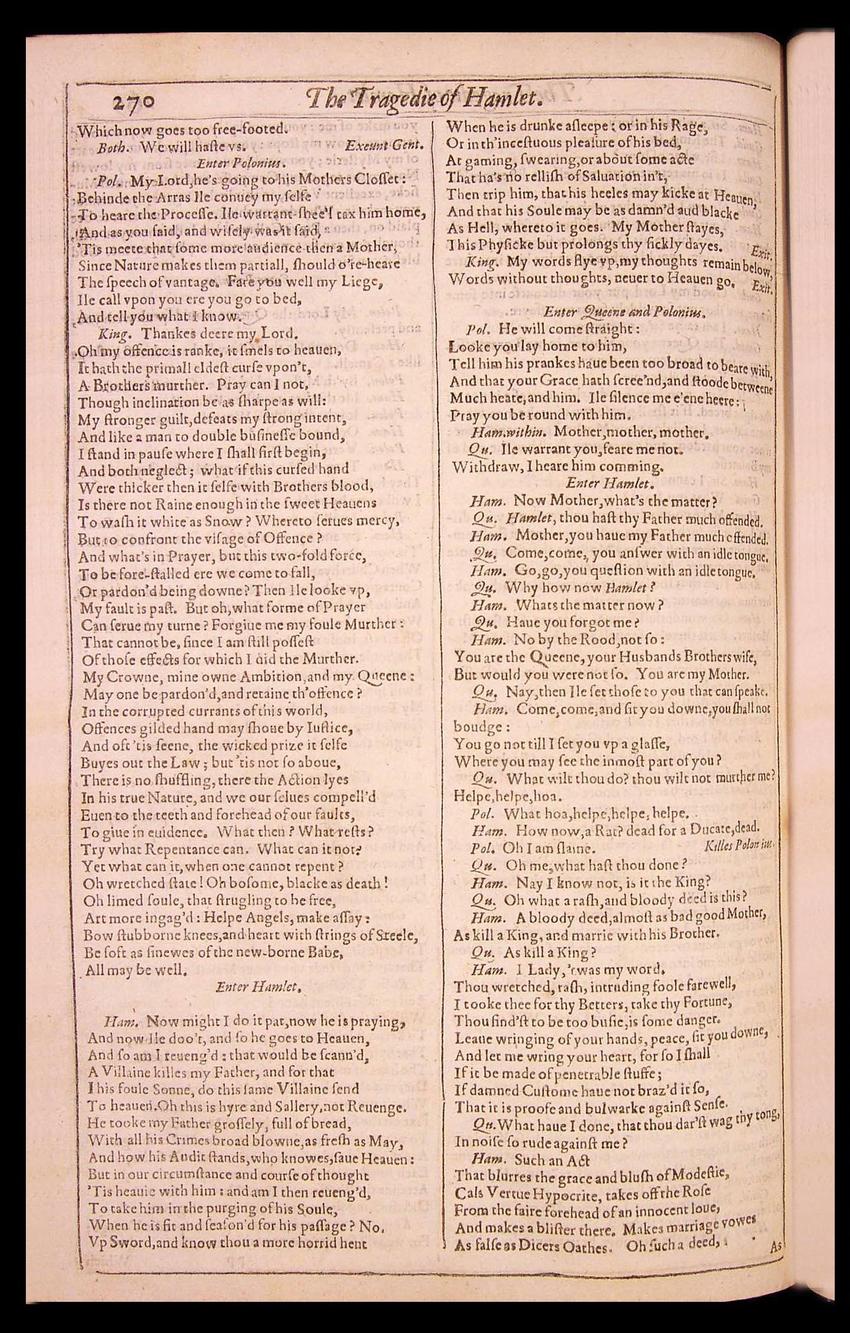 270
The Tragedie of Hamlet.
Which now goes too free-footed.
Both. We will haste vs. Exeunt Gent.
Enter Polonius.
Pol. My Lord, he's going to his Mothers Closset:
Behinde the Arras Ile conuey my selfe
To heare the Processe. Ile warrant shee'l tax him home,
And as you said, and wisely was it said,
'Tis meete that some more audience then a Mother,
Since Nature makes them partiall, should o're-heare
The speech of vantage. Fare you well my Liege,
Ile call vpon you ere you go to bed,
And tell you what I know.
King. Thankes deere my Lord.
Oh my offence is ranke, it smels to heauen,
It hath the primall eldest curse vpon't,
A Brothers murther. Pray can I not,
Though inclination be as sharpe as will:
My stronger guilt, defeats my strong intent,
And like a man to double businesse bound,
I stand in pause where I shall first begin,
And both neglect; what if this cursed hand
Were thicker then it selfe with Brothers blood,
Is there not Raine enough in the sweet Heauens
To wash it white as Snow? Whereto serues mercy,
But to confront the visage of Offence?
And what's in Prayer, but this two-fold force,
To be fore-stalled ere we come to fall,
Or pardon'd being downe? Then Ile looke vp,
My fault is past. But oh, what forme of Prayer
Can serue my turne? Forgiue me my foule Murther:
That cannot be, since I am still possest
Of those effects for which I did the Murther.
My Crowne, mine owne Ambition, and my Queene:
May one be pardon'd, and retaine th'offence?
In the corrupted currants of this world,
Offences gilded hand may shoue by Iustice,
And oft 'tis seene, the wicked prize it selfe
Buyes out the Law; but 'tis not so aboue,
There is no shuffling, there the Action lyes
In his true Nature, and we our selues compell'd
Euen to the teeth and forehead of our faults,
To giue in euidence. What then? What rests?
Try what Repentance can. What can it not?
Yet what can it, when one cannot repent?
Oh wretched state! Oh bosome, blacke as death!
Oh limed soule, that strugling to be free,
Art more ingag'd: Helpe Angels, make assay:
Bow stubborne knees, and heart with strings of Steele,
Be soft as sinewes of the new-borne Babe,
All may be well.
Enter Hamlet.
Ham. Now might I do it pat, now he is praying,
And now Ile doo't, and so he goes to Heauen,
And so am I reueng'd: that would be scann'd,
A Villaine killes my Father, and for that
I his foule Sonne, do this same Villaine send
To heauen. Oh this is hyre and Sallery, not Reuenge.
He tooke my Father grossely, full of bread,
With all his Crimes broad blowne, as fresh as May,
And how his Audit stands, who knowes, saue Heauen:
But in our circumstance and course of thought
'Tis heauie with him: and am I then reueng'd,
To take him in the purging of his Soule,
When he is fit and season'd for his passage? No.
Vp Sword, and know thou a more horrid hent
When he is drunke asleepe: or in his Rage,
Or in th'incestuous pleasure of his bed,
At gaming, swearing, or about some acte
That ha's no rellish of Saluation in't,
Then trip him, that his heeles may kicke at Heauen,
And that his Soule may be as damn'd aud blacke
As Hell, whereto it goes. My Mother stayes,
This Physicke but prolongs thy sickly dayes. Exit.
King. My words flye vp, my thoughts remain below,
Words without thoughts, neuer to Heauen go. Exit.
Enter Queene and Polonius.
Pol. He will come straight:
Looke you lay home to him,
Tell him his prankes haue been too broad to beare with,
And that your Grace hath scree'nd, and stoode betweene
Much heate, and him. Ile silence me e'ene heere:
Pray you be round with him.
Ham. within. Mother, mother, mother.
Qu. Ile warrant you, feare me not.
Withdraw, I heare him comming.
Enter Hamlet.
Ham. Now Mother, what's the matter?
Qu. Hamlet, thou hast thy Father much offended.
Ham. Mother, you haue my Father much offended.
Qu. Come, come, you answer with an idle tongue.
Ham. Go, go, you question with an idle tongue.
Qu. Why how now Hamlet?
Ham. Whats the matter now?
Qu. Haue you forgot me?
Ham. No by the Rood, not so:
You are the Queene, your Husbands Brothers wife,
But would you were not so. You are my Mother.
Qu. Nay, then Ile set those to you that can speake.
Ham. Come, come, and sit you downe, you shall not
boudge:
You go not till I set you vp a glasse,
Where you may see the inmost part of you?
Qu. What wilt thou do? thou wilt not murther me?
Helpe, helpe, hoa.
Pol. What hoa, helpe, helpe, helpe.
Ham. How now, a Rat? dead for a Ducate, dead.
Pol. Oh I am slaine. Killes Polonius.
Qu. Oh me, what hast thou done?
Ham. Nay I know not, is it the King?
Qu. Oh what a rash, and bloody deed is this?
Ham. A bloody deed, almost as bad good Mother,
As kill a King, and marrie with his Brother.
Qu. As kill a King?
Ham. I Lady, 'twas my word.
Thou wretched, rash, intruding foole farewell,
I tooke thee for thy Betters, take thy Fortune,
Thou find'st to be too busie, is some danger.
Leaue wringing of your hands, peace, sit you downe,
And let me wring your heart, for so I shall
If it be made of penetrable stuffe;
If damned Custome haue not braz'd it so,
That it is proofe and bulwarke against Sense.
Qu. What haue I done, that thou dar'st wag thy tong,
In noise so rude against me?
Ham. Such an Act
That blurres the grace and blush of Modestie,
Cals Vertue Hypocrite, takes off the Rose
From the faire forehead of an innocent loue,
And makes a blister there. Makes marriage vowes
As false as Dicers Oathes. Oh such a deed,
As